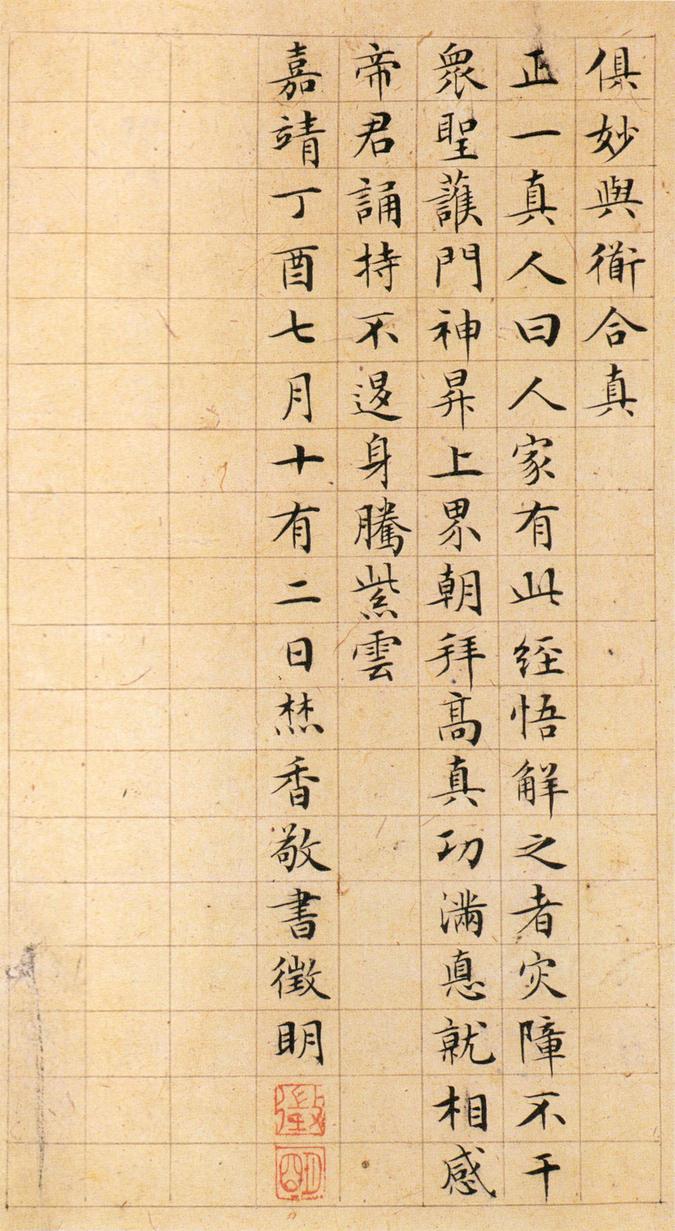 俱妙與衜合真
正一真人曰人家有此經悟觧之者灾障不干
眾聖護門神昇上界朝拜髙真功滿悳就相感
帝君誦持不退身騰紫雲
嘉靖丁酉七月十有二日焚香敬書徵眀
徵
明